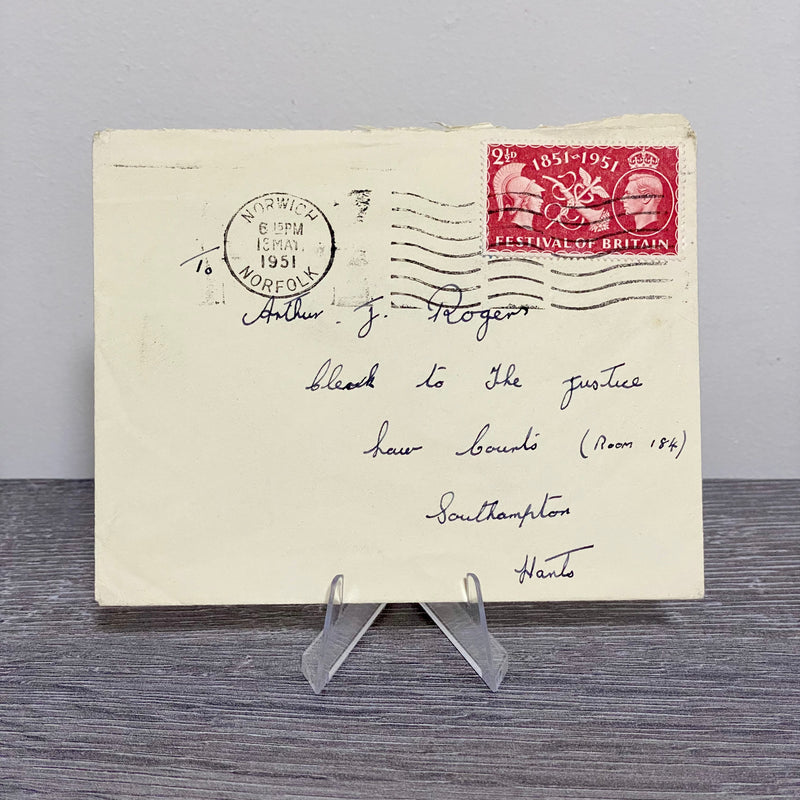 2½D 1851-1951
FESTIVAL OF BRITAIN
NORWICH
6 15PM
13 MAY.
1951
NORFOLK
To
Arthur J. Rogers
Clerk to The Justice
Law Courts (Room 184)
Southampton
Hants